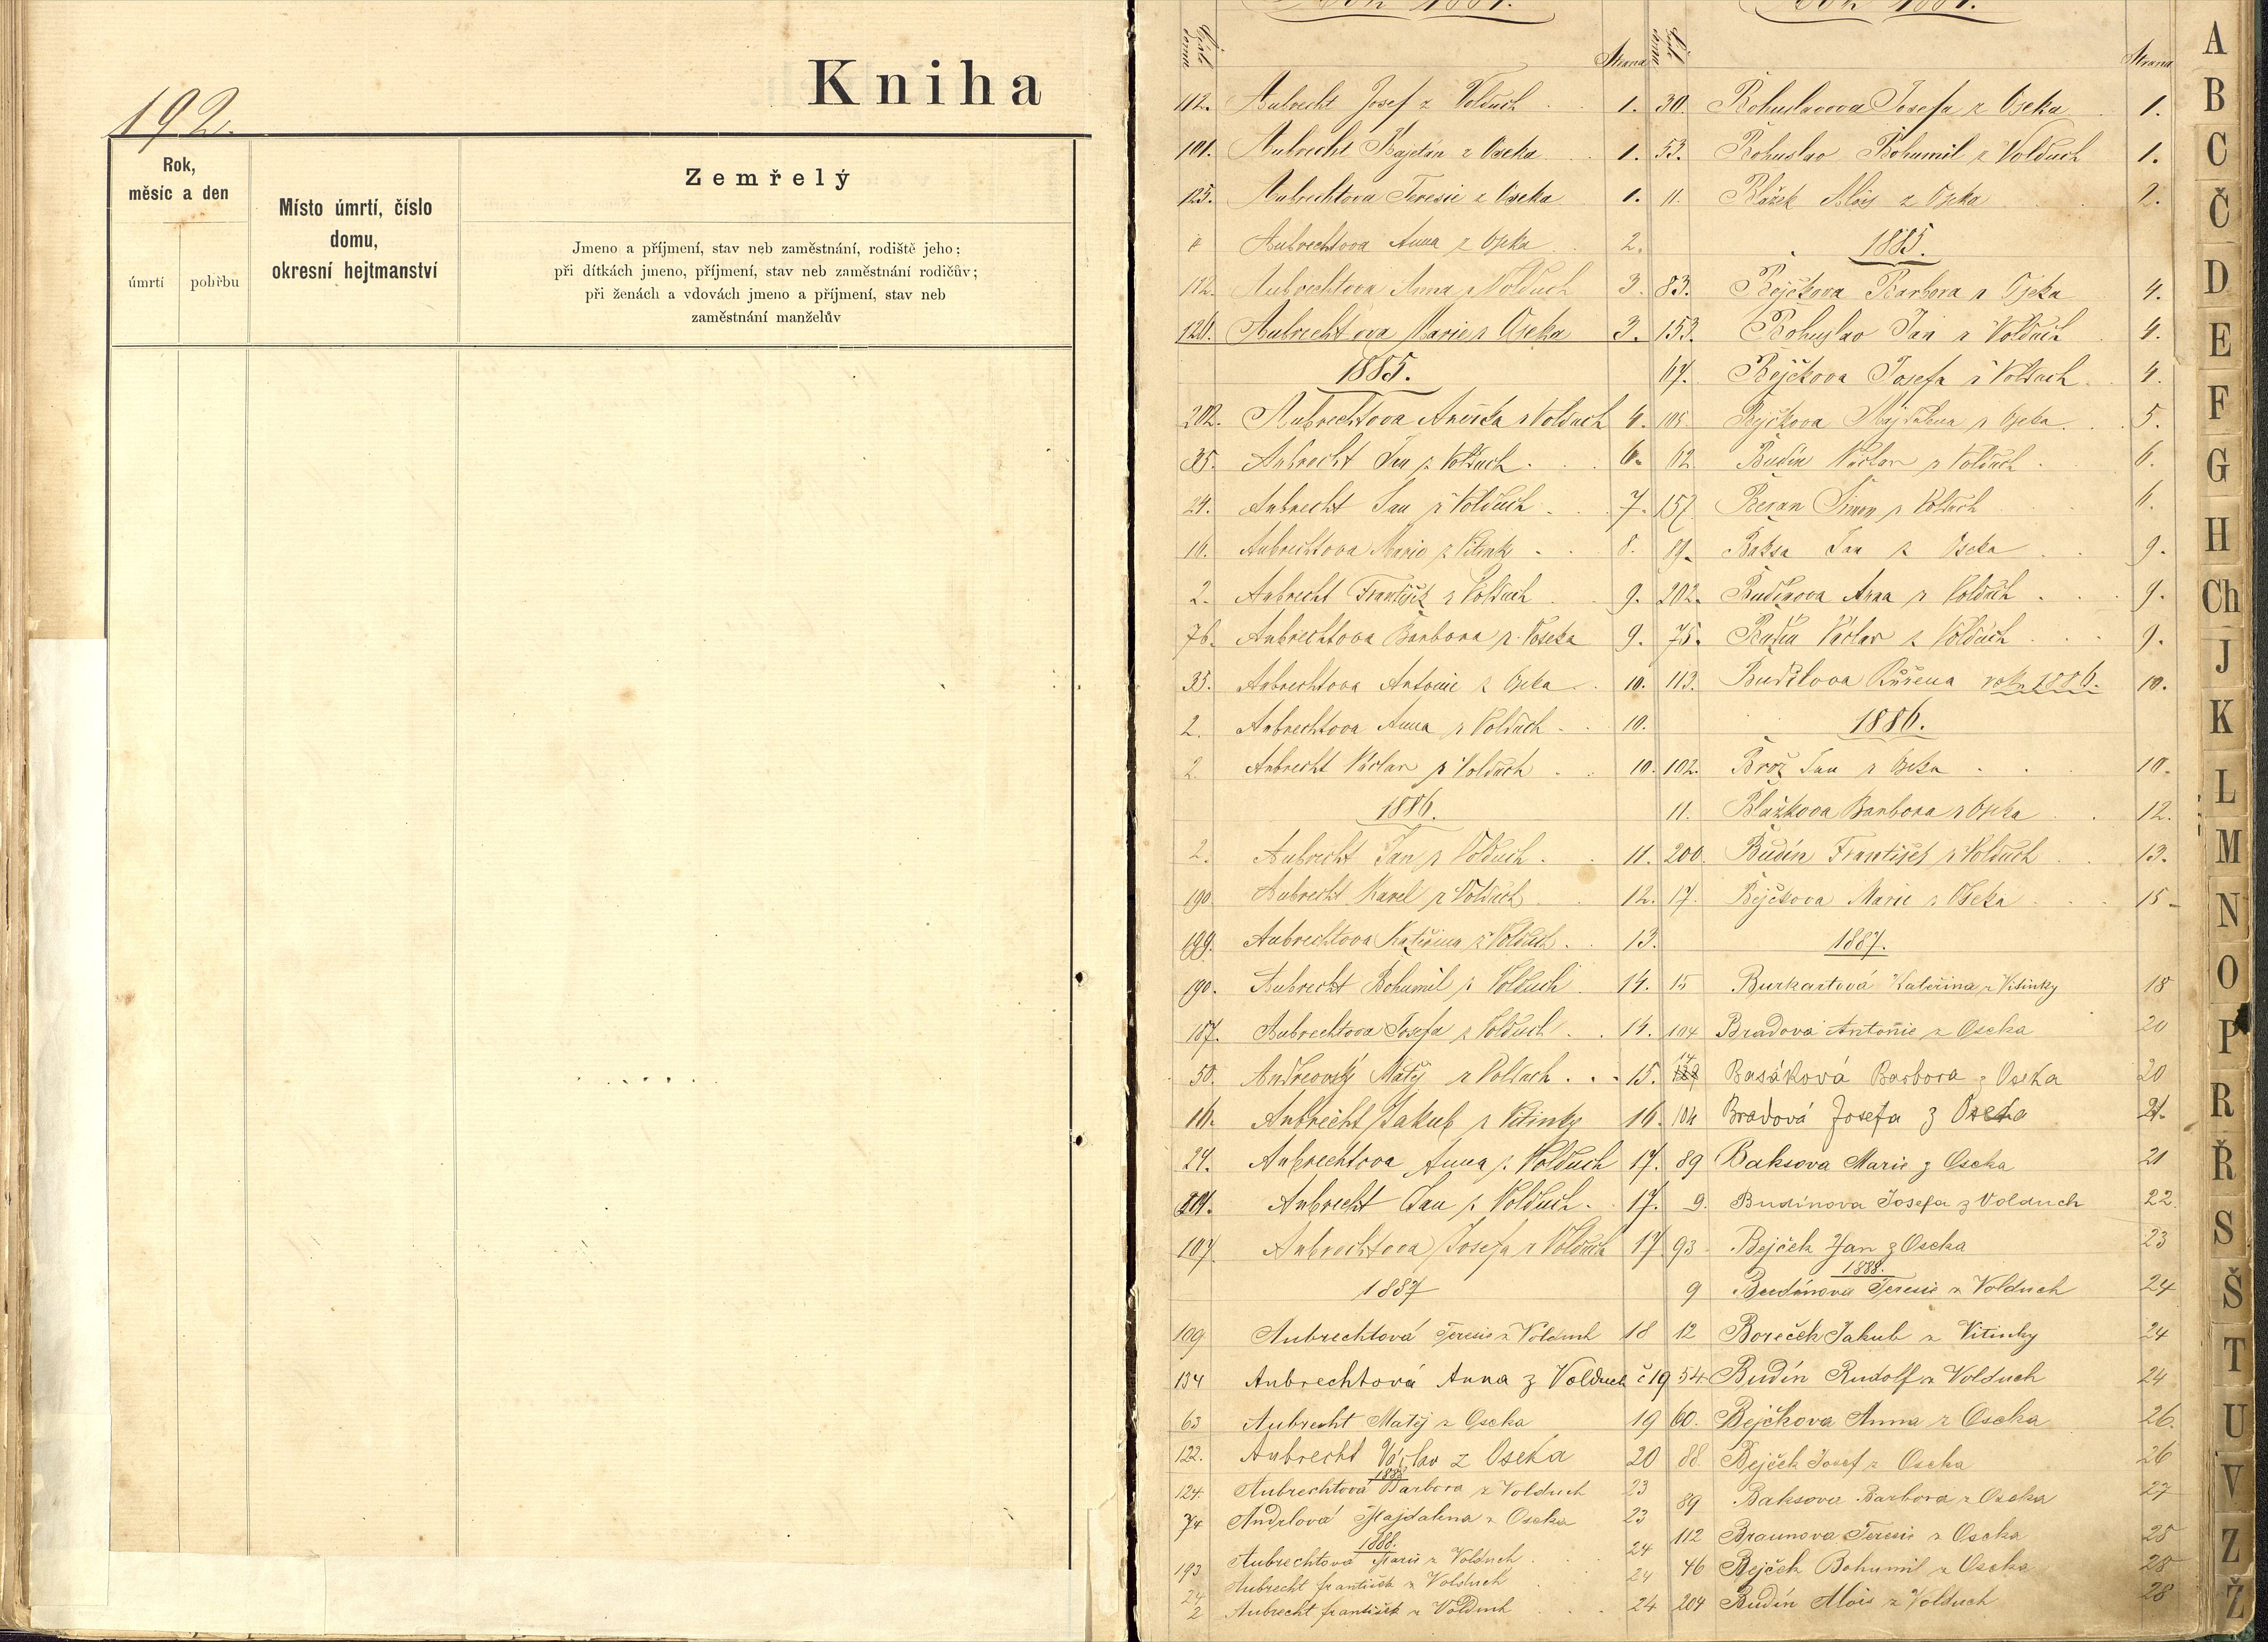 192.
Kniha
Rok,
měsíc a den
úmrtí
pohřbu
Místo úmrtí, číslo
domu,
okresní hejtmanství
Zemřelý
Jmeno a příjmení, stav neb zaměstnání, rodiště jeho;
při dítkách jmeno, příjmení, stav neb zaměstnání rodičův;
při ženách a vdovách jmeno a příjmení, stav neb
zaměstnání manželův
Strana
112. Aubrecht Josef z Volduch 1.
101. Aubrecht Kajetán z Oseka 1.
125. Aubrechtova Teresie z Oseka 1.
Aubrechtova Anna z Oseka 2.
112. Aubrechtova Anna z Volduch 3.
120. Aubrechtova Marie z Oseka 3.
1885.
202. Aubrechtova Anežka z Volduch 4.
35. Aubrecht Jan z Volduch 6.
24. Aubrecht Jan z Volduch 7.
16. Aubrechtova Marie z Vitinky 8.
2. Aubrecht František z Volduch 9.
76. Aubrechtova Barbora z Voseka 9.
33. Aubrechtova Antonie z Oseka 10.
2. Aubrechtova Anna z Volduch 10.
2. Aubrecht Václav z Volduch 10.
1886.
2. Aubrecht Jan z Volduch 11.
190 Aubrecht Karel z Volduch 12.
199. Aubrechtova Kateřina z Volduch 13.
190. Aubrecht Bohumil z Volduch 14.
107. Aubrechtova Josefa z Volduch 14.
50. Matěj z Volduch 15.
16. Aubrecht Jakub z Vitinky 16.
24. Aubrechtova Anna z Volduch 17.
Aubrecht Jan z Volduch 17.
107. Aubrechtova Josefa z Volduch 17
1887
109 Aubrechtová Teresie z Volduch 18
134 Aubrechtová Anna z Volduch č 19
63 Aubrecht Matěj z Oseka 19
122. Aubrecht Václav z Oseka 20
1888
124. Aubrechtová Barbora z Volduch 23
74 Andrlová Majdalena z Oseka 23
1888.
193 Aubrechtová Marie z Volduch 24
24 Aubrecht František z Volduch 24
2 Aubrecht František z Volduch 24
Strana
30. Bohuslavova Josefa z Oseka 1.
53. Bohuslav Bohumil z Volduch 1.
11. Blážek Alois z Oseka 2.
1885.
83. Bejčkova Barbora z Oseka 4.
153. Bohuslav Jan z Volduch 4.
67. Bejčkova Josefa z Volduch 4.
105. Bejčkova Majdalena z Oseka 5.
62 Budín Václav z Volduch 6.
157 Beran Šimon z Volduch 6.
89. Baksa Jan z Oseka 9.
202. Budinova Anna z Volduch 9.
75. Václav z Volduch 9.
113. Budilova Růžena roku 1886. 10.
1886.
102. Brož Jan z Oseka 10.
11. Blažkova Barbora z Oseka 12.
200 Budín František z Volduch 13.
17. Bejčkova Marie z Oseka 15
1887.
15 Burkartová Kateřina z Vitinky 18
104 Bradová Antonie z Oseka 20
Basáková Barbora z Oseka 20
104 Bradová Josefa z Oseka 21.
89 Baksova Marie z Oseka 21
9. Budínova Josefa z Volduch 22
93 Bejček Jan z Oseka 23
1888.
9 Budínova Teresie z Volduch 24
12 Boreček Jakub z Vitinky 24
54 Budín Rudolf z Volduch 24
60. Bejčkova Anna z Oseka 26.
88 Bejček Josef z Oseka 26
89 Baksova Barbora z Oseka 27
112 Braunova Teresie z Oseka 28
46 Bejček Bohumil z Oseka 28
204 Budín Alois z Volduch 28
A
B
C
Č
D
E
F
G
H
Ch
J
K
L
M
N
O
P
R
Ř
S
Š
T
U
V
Z
Ž